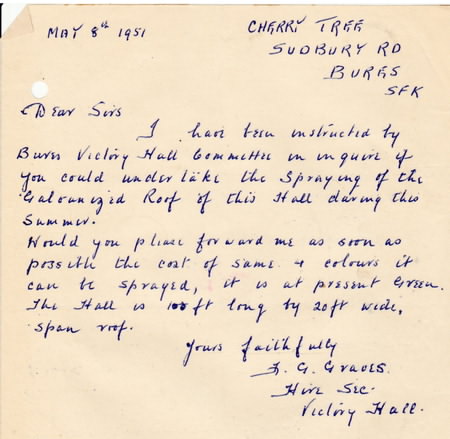 MAY 8th 1951
CHERRY TREE
SUDBURY RD
BURES
SFK
Dear Sirs
I have been instructed by
Bures Victory Hall Committee in inquire if
you could under take the Spraying of the
Galvanized Roof of this Hall during this
Summer.
Would you please forward me as soon as
possith the cost of same & colours it
can be sprayed, it is at present Green.
The Hall is ft long by 20ft wide,
span roof.
Yours faithfully
G. Graves.
Hire Sec.
Victory Hall.